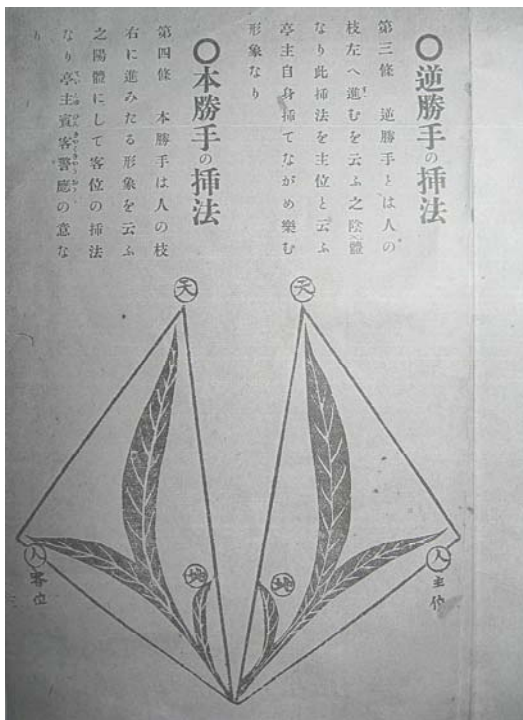 ○逆勝手の挿法
第三條 逆勝手とは人の
枝左へ進むを云ふ之陰體
なり此挿法を主位と云ふ
亭主自身挿てながめ樂む
形象なり
○本勝手の挿法
第四條 本勝手は人の枝
右に進みたる形象を云ふ
之陽體にして客位の挿法
なり亭主賓客警應の意な
り
天
天
人主位
人客位
地
地
三